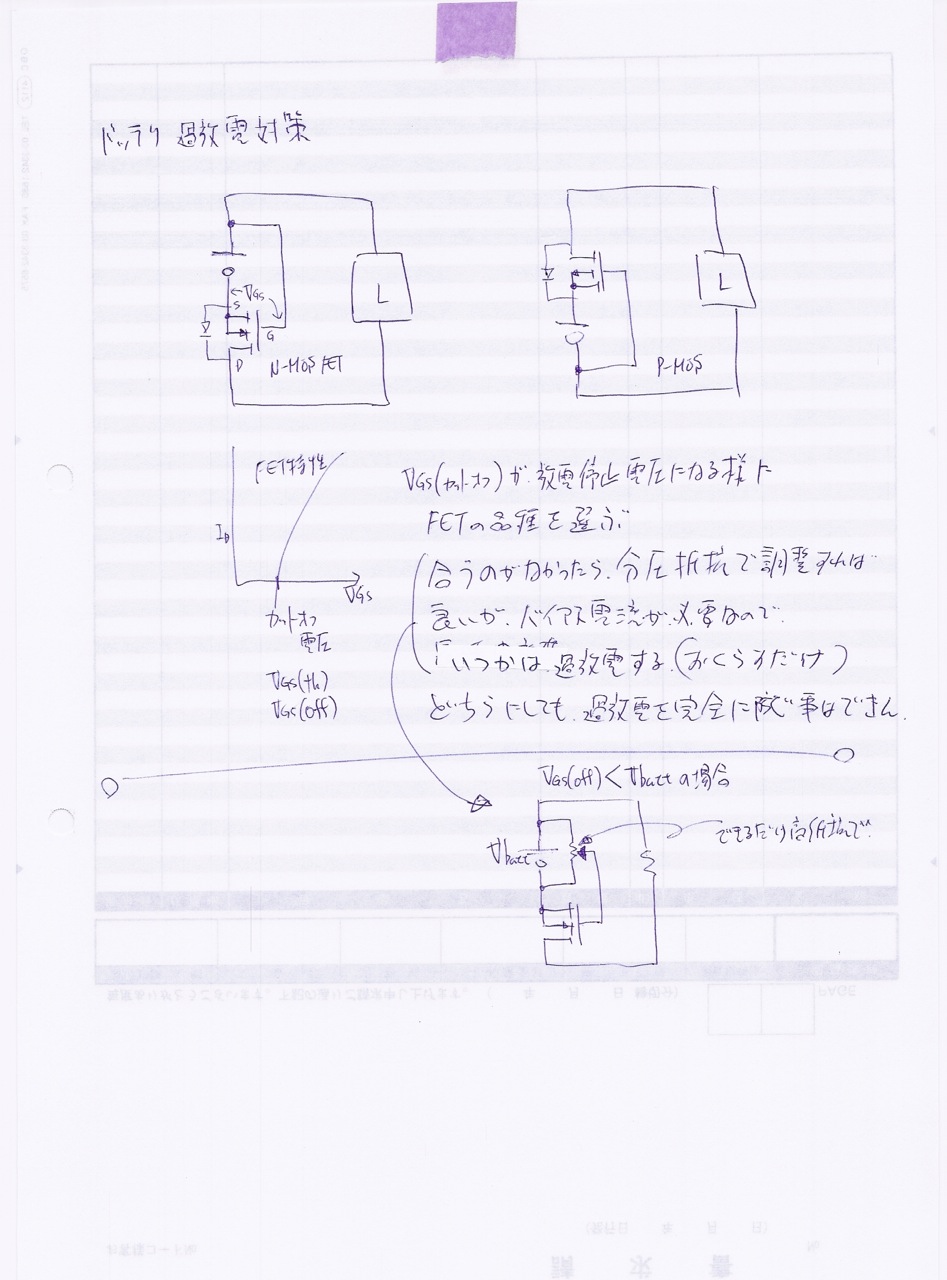 バッテリ 過放電対策
VGS
S
G
D
N-MOS FET
L
P-MOS
L
FET特性
ID
VGS
カットオフ
電圧
VGS(th)
VGS(off)
VGS(カットオフ)が放電停止電圧になる様に
FETの品種を選ぶ
合うのがなかったら、分圧抵抗で調整すれば
良いが、バイアス電流が必要なので、
いつかは過放電する(おくらすだけ)
どちらにしても、過放電を完全に防ぐ事はできん.
VGS(off)<Vbattの場合
Vbatt
できるだけ高抵抗で.
PAGE
請求書